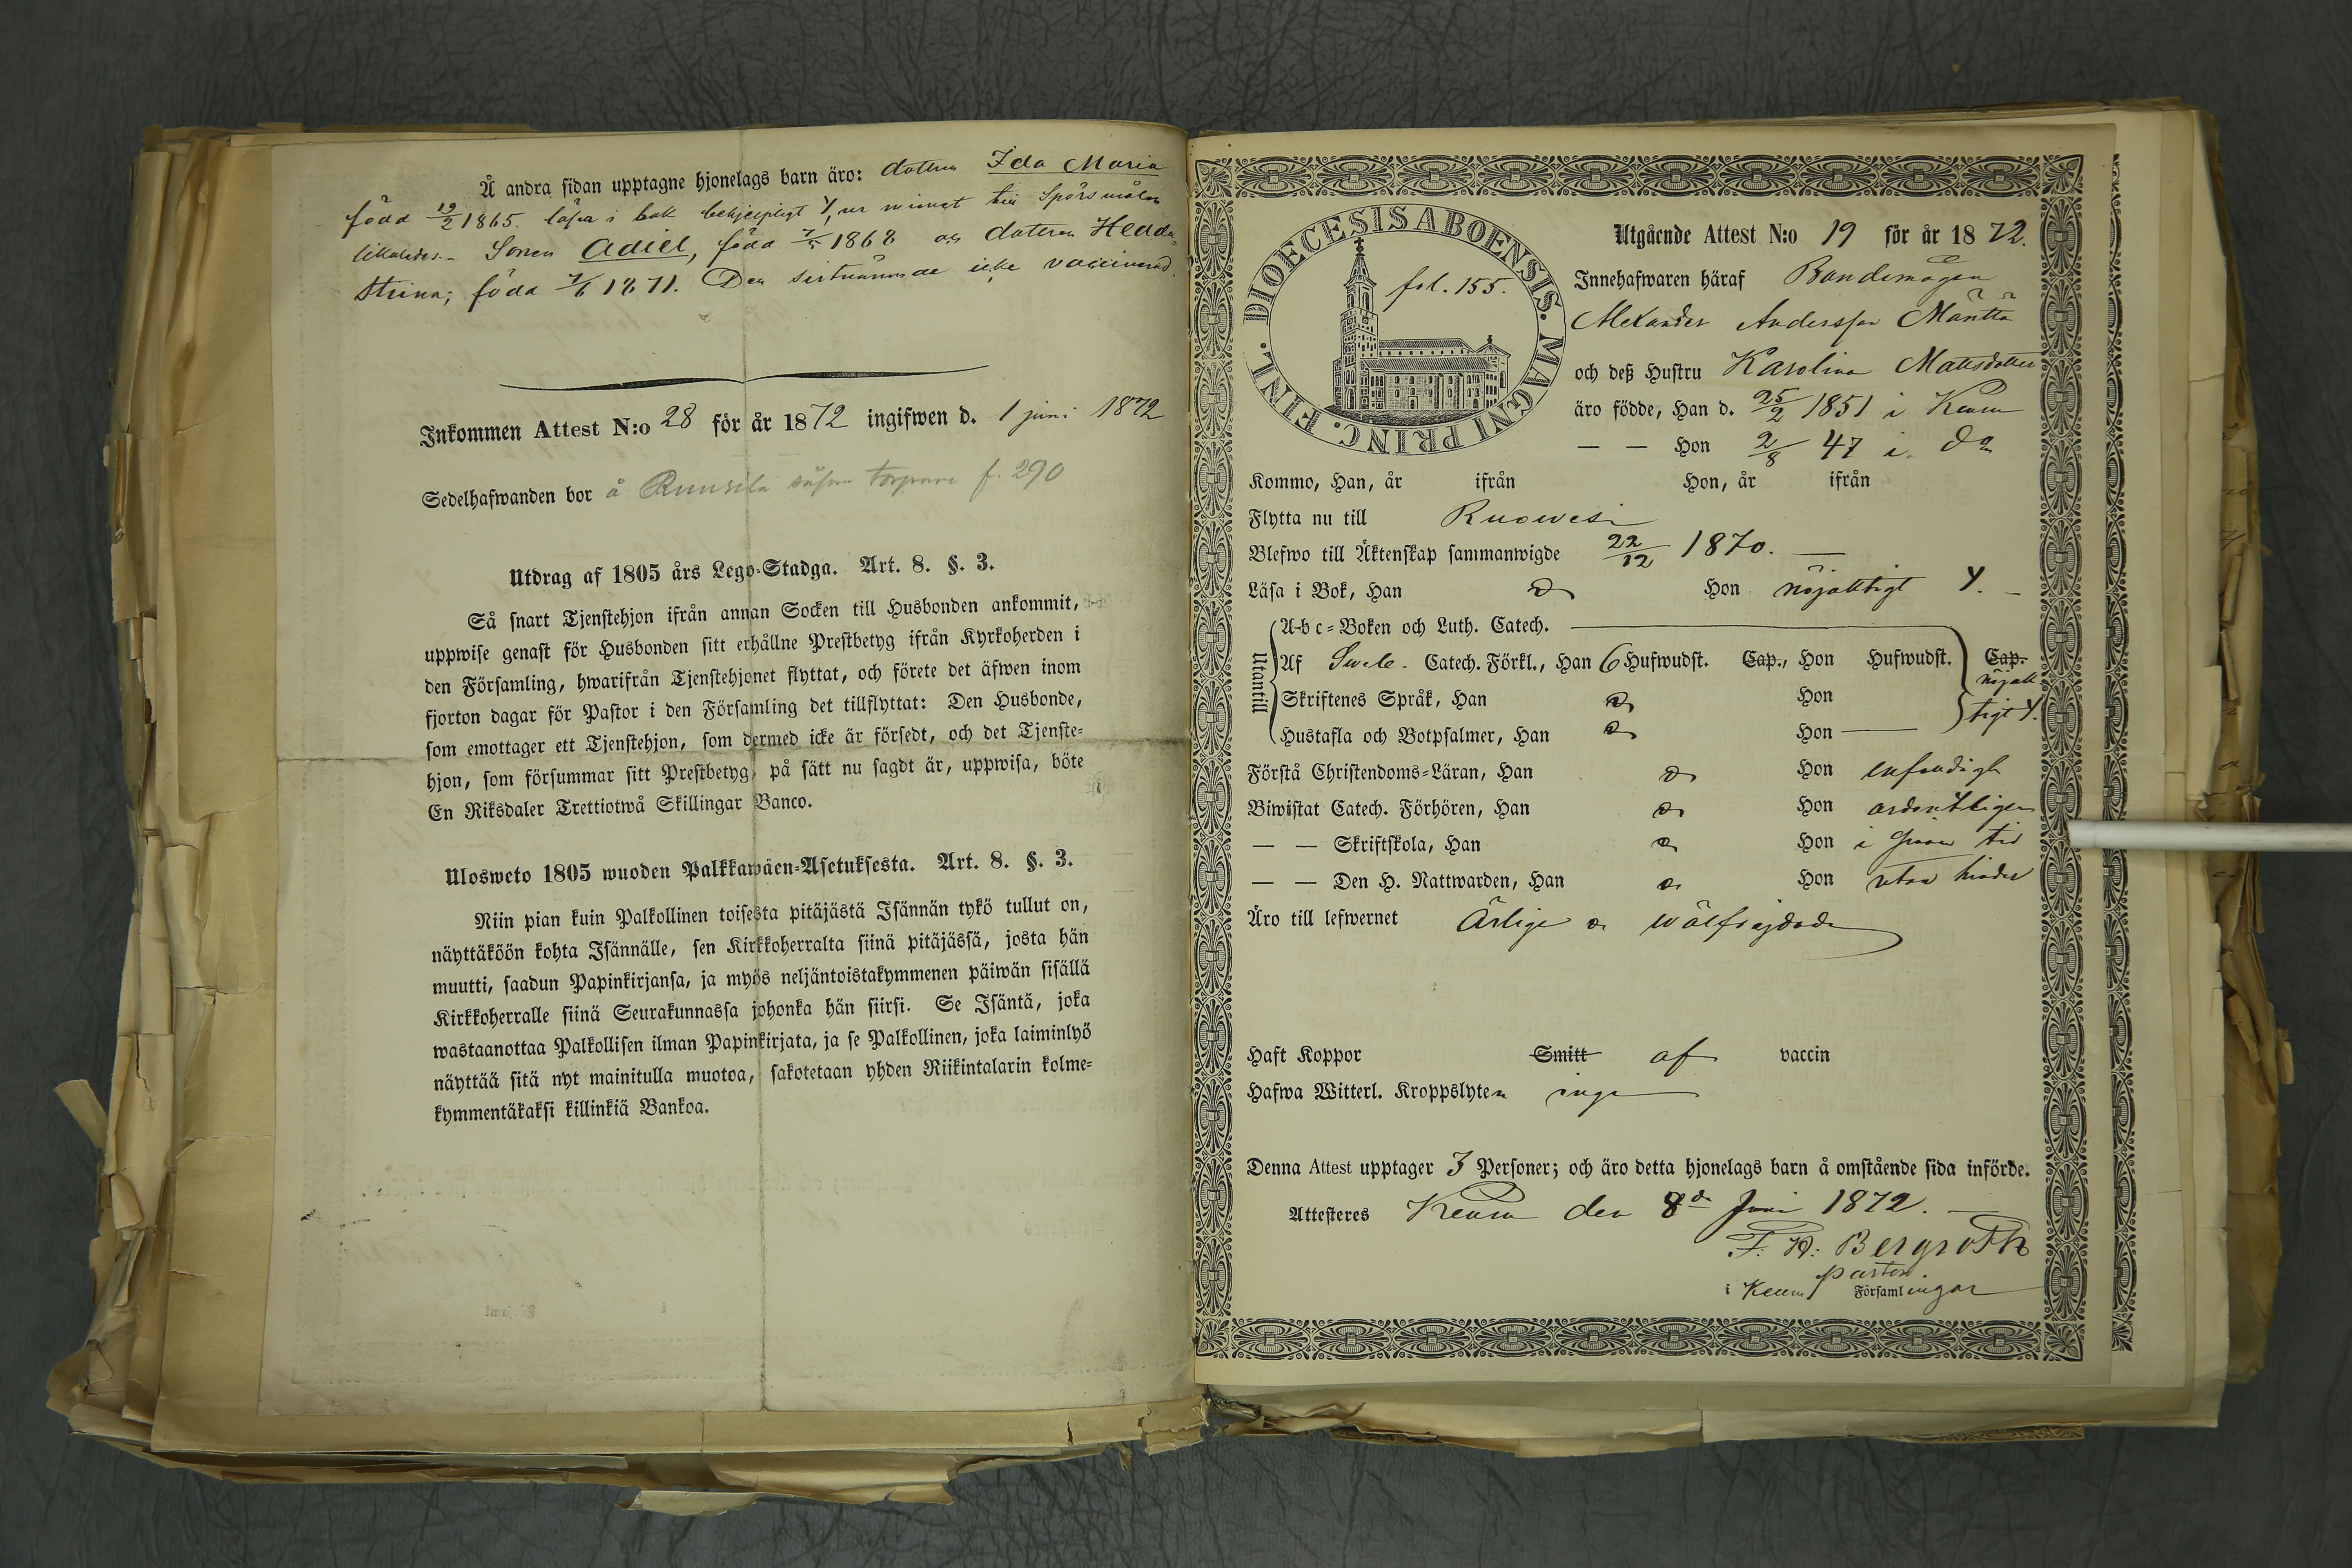 Å andra sidan upptagne hjonelags barn äro: dottern Ida Maria
född 19/2 1865. läsa i bok behjelpligt
Sonen Adiel, född 7/5 1868 och dottren Hedda
Stina; född 7/6 1871. Den sistnämnde icke vaccinerad.
Inkommen Attest N:o 28 för år 1872 ingifwen d. 1 juni 1872
Sedelhafwanden bor å Ruusila f. 290
Utdrag af 1805 års Lego-Stadga. Art. 8. §. 3.
Så snart Tjenstehjon ifrån annan Socken till Husbonden ankommit,
uppwise genast för Husbonden sitt erhållne Prestbetyg ifrån Kyrkoherden i
den Församling, hwarifrån Tjenstehjonet flyttat, och förete det äfwen inom
fjorton dagar för Pastor i den Församling det tillflyttat: Den Husbonde,
som emottager ett Tjenstehjon, som dermed icke är försedt, och det Tjenste-
hjon, som försummar sitt Prestbetyg, på sätt nu sagdt är, uppwisa, böte
En Riksdaler Trettiotwå Skillingar Banco.
Ulosweto 1805 wuoden Palkkawäen-Asetuksesta. Art. 8. §. 3.
Niin pian kuin Palkollinen toisesta pitäjästä Isännän tykö tullut on,
näyttäköön kohta Isännälle, sen Kirkkoherralta siinä pitäjässä, josta hän
muutti, saadun Papinkirjansa, ja myös neljäntoistakymmenen päiwän sisällä
Kirkkoherralle siinä Seurakunnassa johonka hän siirsi. Se Isäntä, joka
wastaanottaa Palkollisen ilman Papinkirjata, ja se Palkollinen, joka laiminlyö
näyttää sitä nyt mainitulla muotoa, sakotetaan yhden Riikintalarin kolme-
kymmentäkaksi killinkiä Bankoa.
DIOECESIS ABOENSIS. MAGNI PRINC. FINL.
fol. 155.
Utgående Attest N:o 19 för år 1872.
Innehafwaren häraf Bondemågen
Alexander Andersson Mänttä
och deß Hustru Karolina Mattsdotter
äro födde, Han d. 25/2 1851 i Keuru
— — Hon 2/8 47 i do
Kommo, Han, år ifrån Hon, år ifrån
Flytta nu till Ruowesi
Blefwo till Äktenskap sammanwigde 22/12 1870. —
Läsa i Bok, Han o Hon nöjaktigt Y. –
Utantill
A-b c-Boken och Luth. Catech.
Af Sveb. Catech. Förkl., Han 6 Hufwudst. Cap., Hon Hufwudst. Cap.
Skriftenes Språk, Han o Hon nöjaktigt Y.
Hustafla och Botpsalmer, Han o Hon —
Förstå Christendoms-Läran, Han o Hon enfaldigt
Biwistat Catech. Förhören, Han o Hon ordentligen
— — Skriftskola, Han o Hon i sinom tid
— — Den H. Nattwarden, Han o Hon utan hinder
Äro till lefwernet Ärlige o wälfrejdade
Haft Koppor Smitt af vaccin
Hafwa Witterl. Kroppslyten inga
Denna Attest upptager 3 Personer; och äro detta hjonelags barn å omstående sida införde.
Attesteres Keuru den 8de Juni 1872. —
F. H. Bergroth
pastor
i Keuru Församlingar